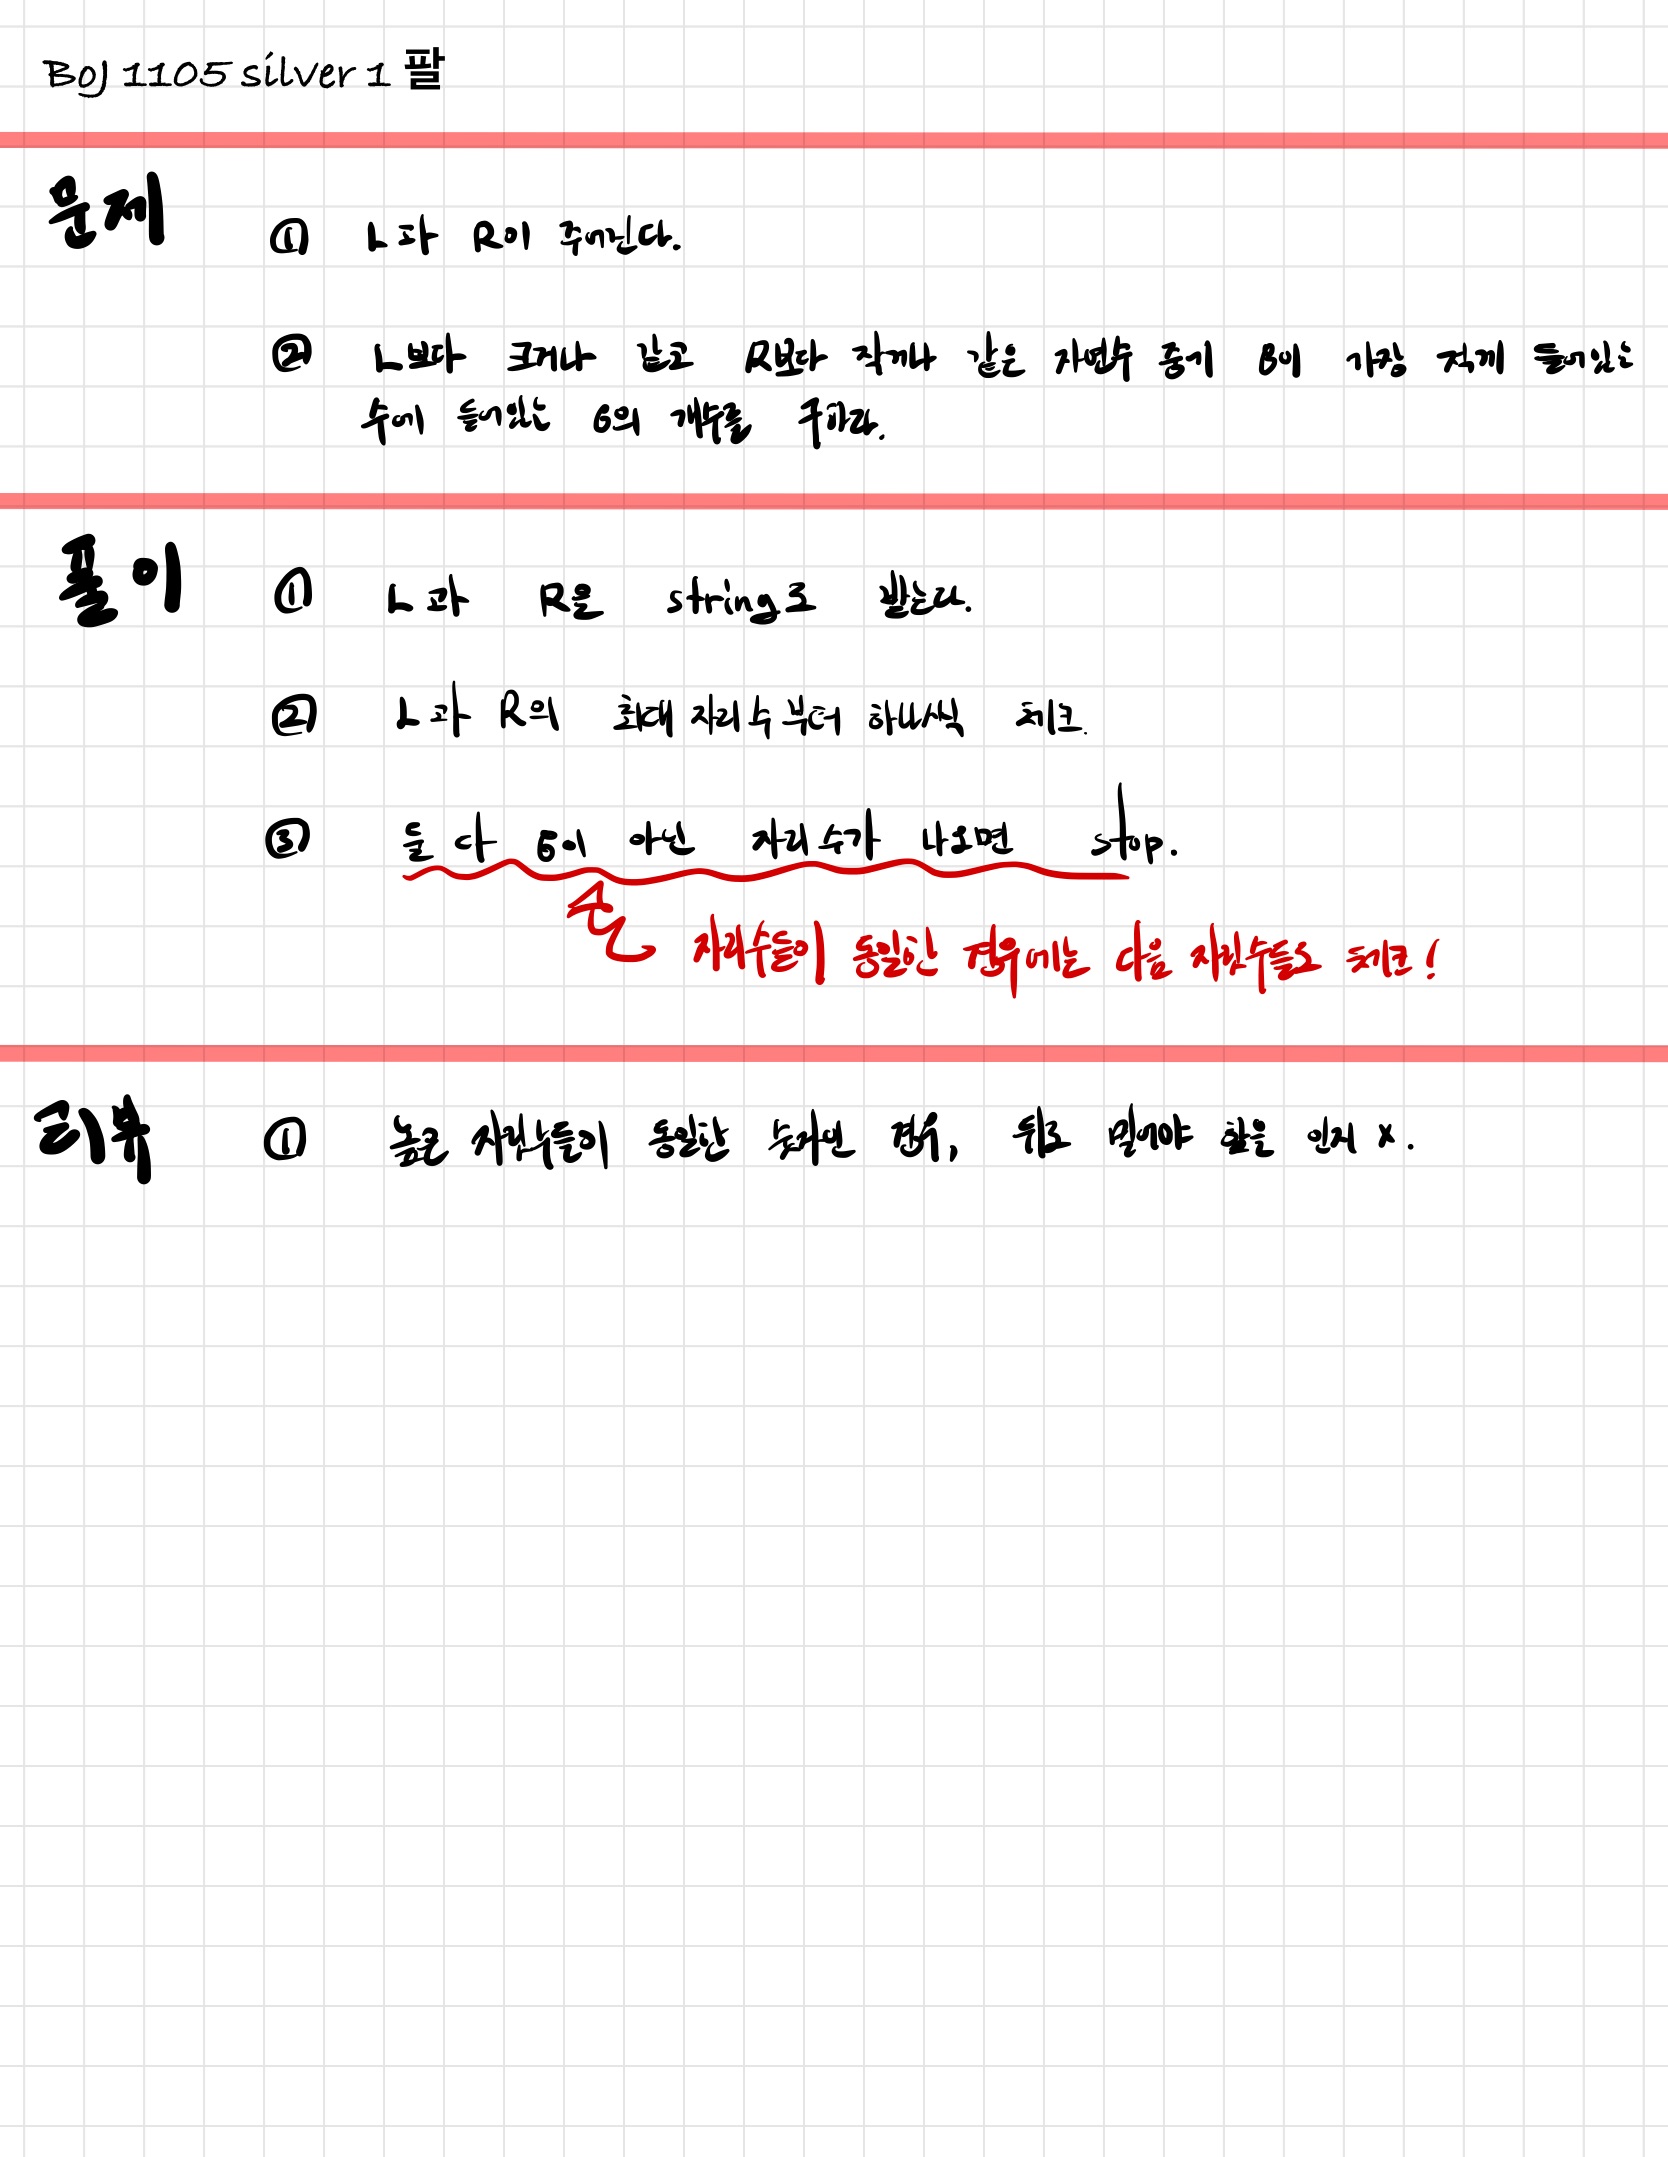 BOJ 1105 silver 1 팔
문제
① L과 R이 주어진다.
② L보다 크거나 같고 R보다 작거나 같은 자연수 중에 8이 가장 적게 들어있는
수에 들어있는 8의 개수를 구하라.
풀이
① L과 R을 string로 받는다.
② L과 R의 최대 자리수부터 하나씩 체크.
③ 둘 다 8이 아닌 자리수가 나오면 stop.
자리수들이 동일한 경우에는 다음 자릿수들도 체크!
리뷰
① 높은 자릿수들이 동일한 숫자면 경우, 뒤로 밀어야 함을 인지 x.